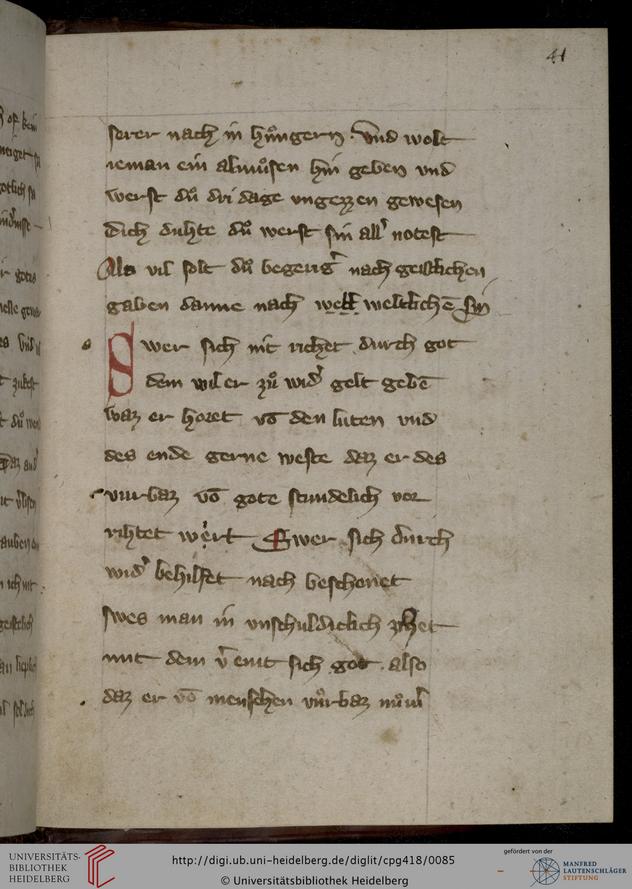 41
serer nach in hůngern. Vnd wolt
ieman ein almůsen hin geben vnd
werst dů dri dage vngezzen gewesen
dich duhte dů werst sin all' notest
Als vil solt dů begerig' nach geistlichen
gaben danne nach weltlichē sin
Swer sich nit richet durch got
dem wil er zů wid' gelt gebē
waz er horet vō den luten vnd
des ende gerne weste daz er des
vurbaz vō gote stundelich vor
rihtet wert Swer sich durch
wid' behilfet nach beschonet
swes man in vnschuldiclich zihet
mit dem v'eint sich got also
daz er vō menschen vůrbaz
UNIVERSITÄTS-
BIBLIOTHEK
HEIDELBERG
http://digi.ub.uni-heidelberg.de/diglit/cpg418/0085
© Universitätsbibliothek Heidelberg
gefördert von der
MANFRED
LAUTENSCHLÄGER
STIFTUNG